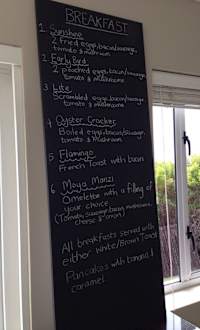 BREAKFAST
1. Sunshine
2 fried eggs, bacon/sausage,
tomato & mushroom
2. Early Bird
2 poached eggs, bacon/sausage
tomato & mushrooms
3 Lite
Scrambled eggs, bacon/sausage
tomato & mushrooms
4 Oyster Cracker
Boiled eggs, bacon/sausage,
tomato & mushroom
5 Flamingo
French Toast with bacon
6 Moyo Manzi
Omelette with a filling of
your choice
(Tomato, sausage, bacon, mushroom,
cheese & onion)
All breakfasts served with
either White/Brown Toast
Pancakes with banana &
caramel